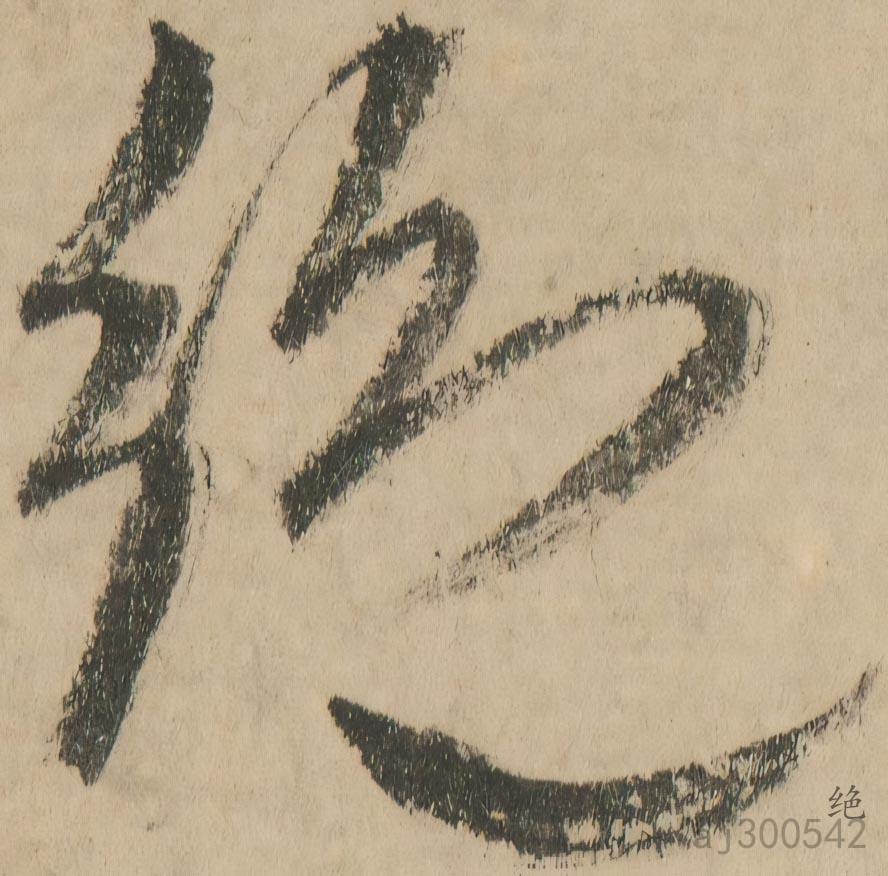 絶
绝
aj300542